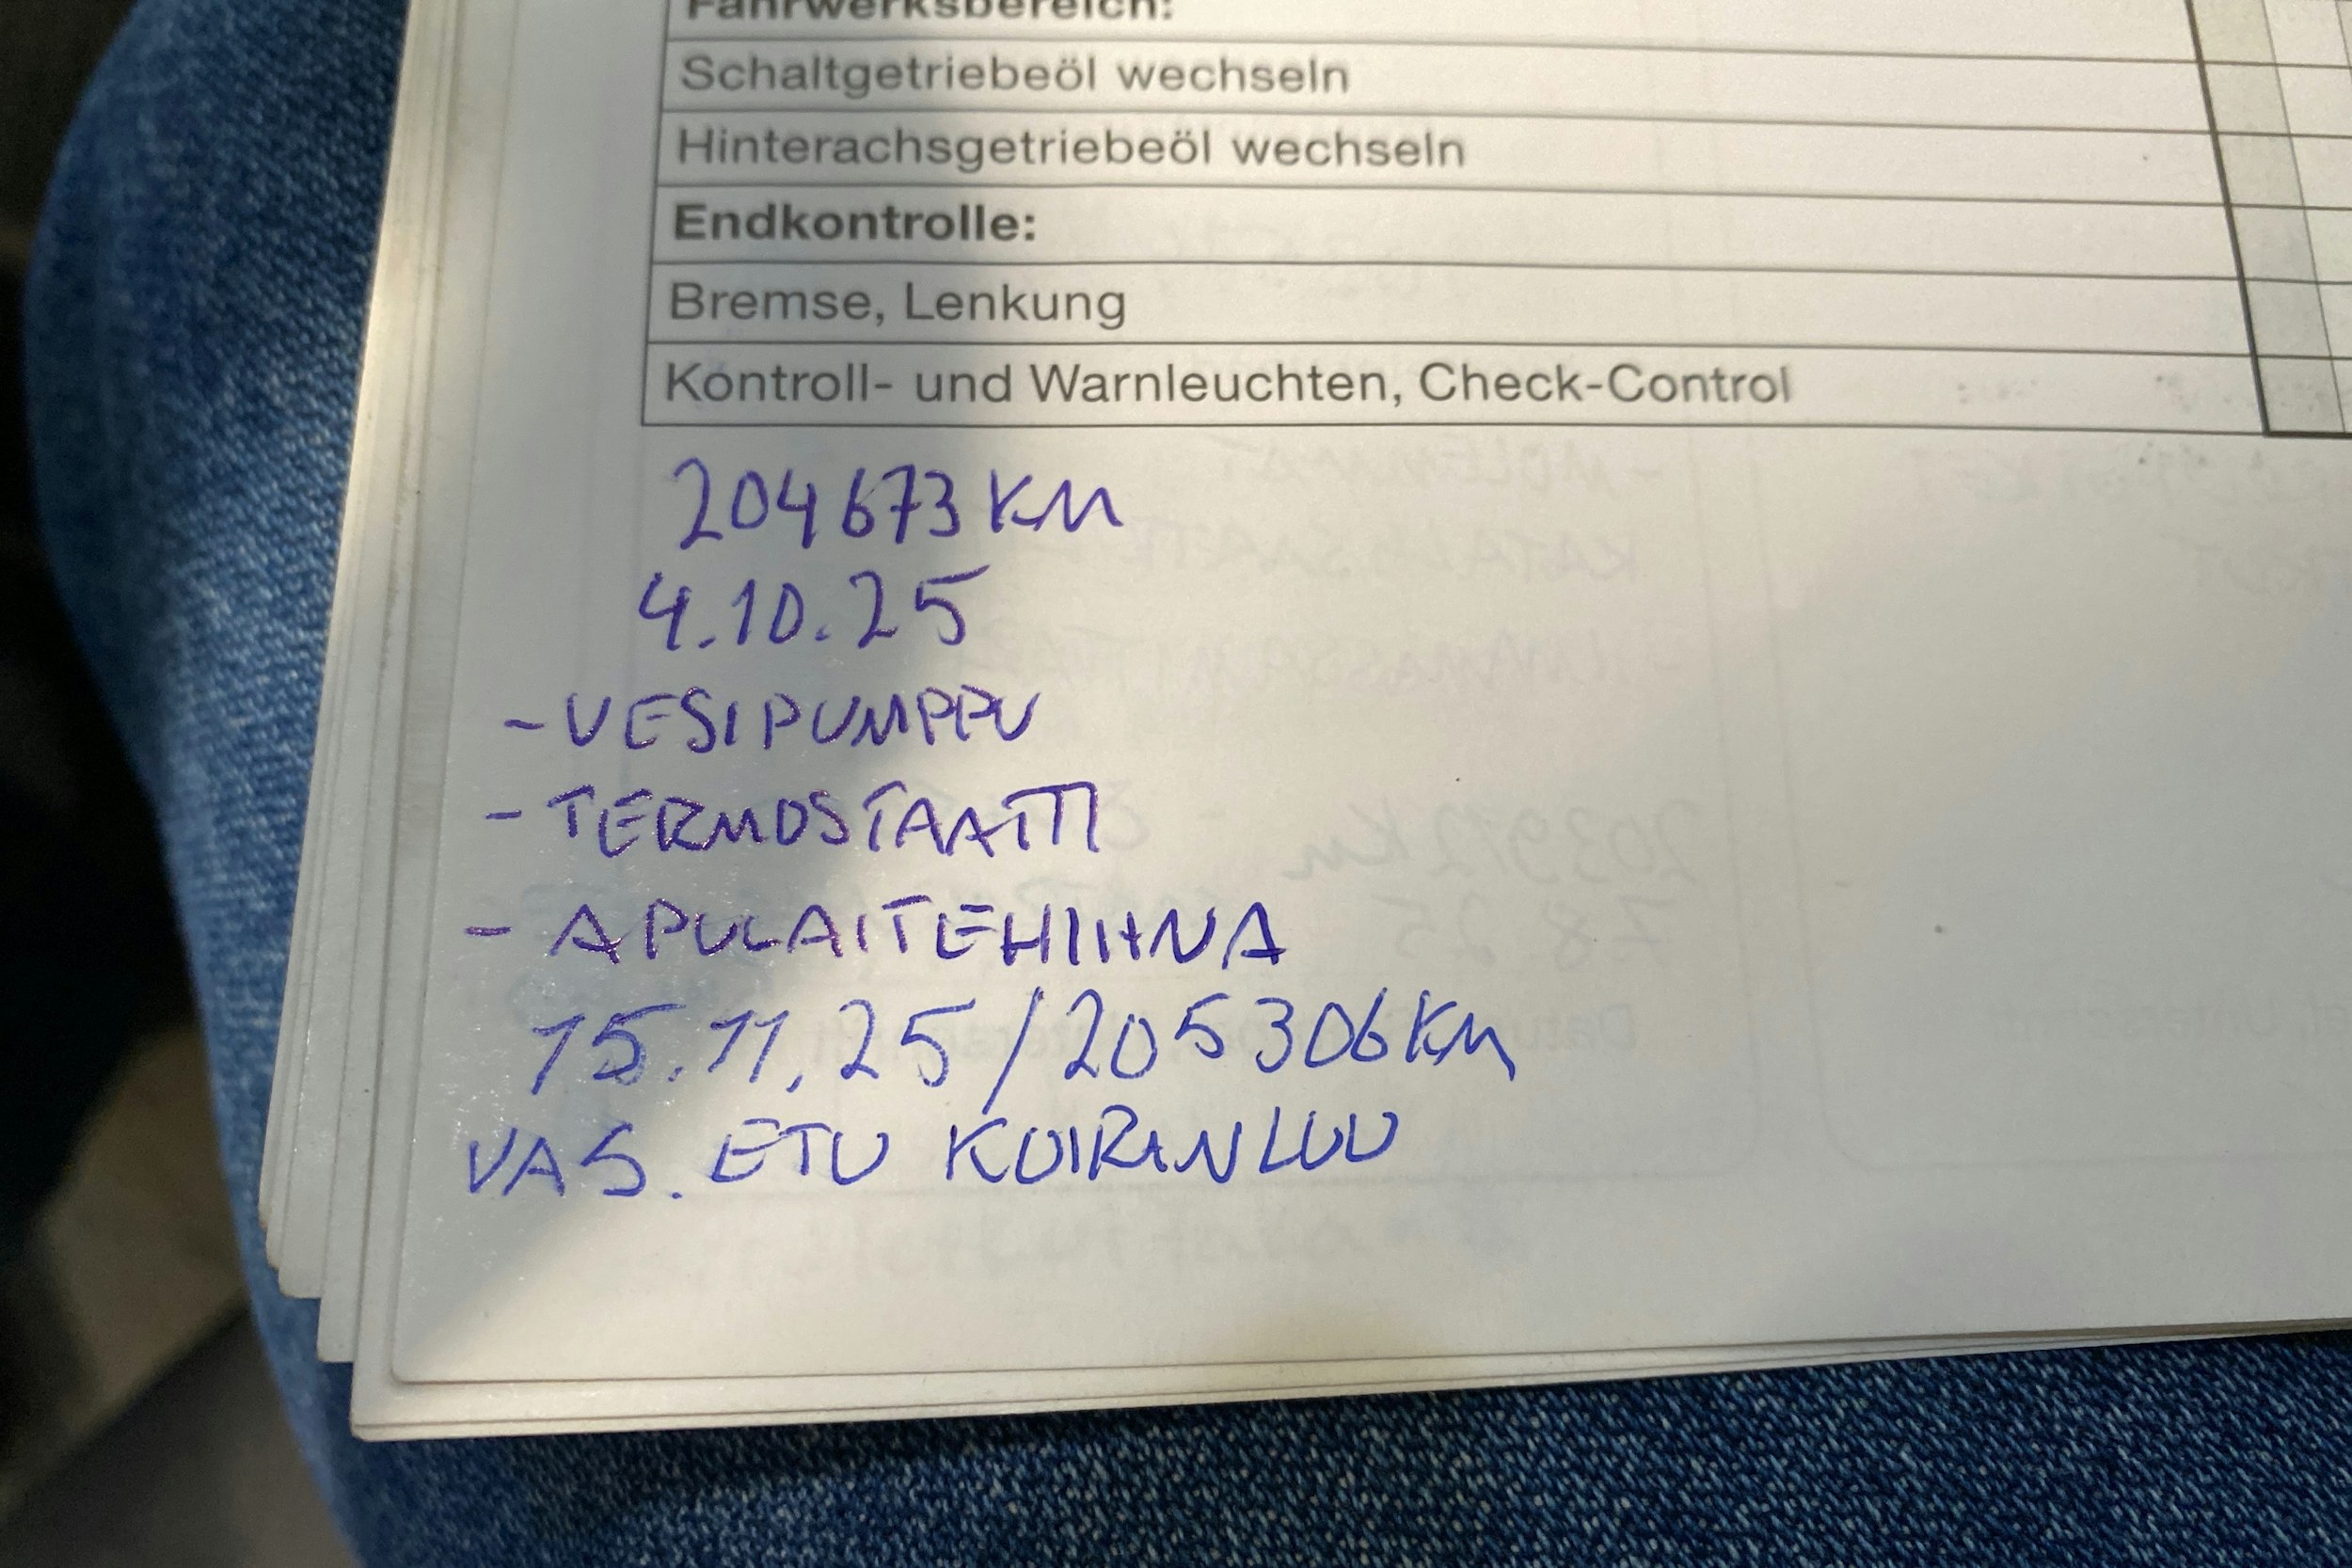 Fahrwerksbereich:
Schaltgetriebeöl wechseln
Hinterachsgetriebeöl wechseln
Endkontrolle:
Bremse, Lenkung
Kontroll- und Warnleuchten, Check-Control
204673 KM
4.10.25
- VESIPUMPPU
- TERMOSTAATTI
- APULAITEHIHNA
15.11.25/205306 KM
VAS. ETU KOIRANLUU